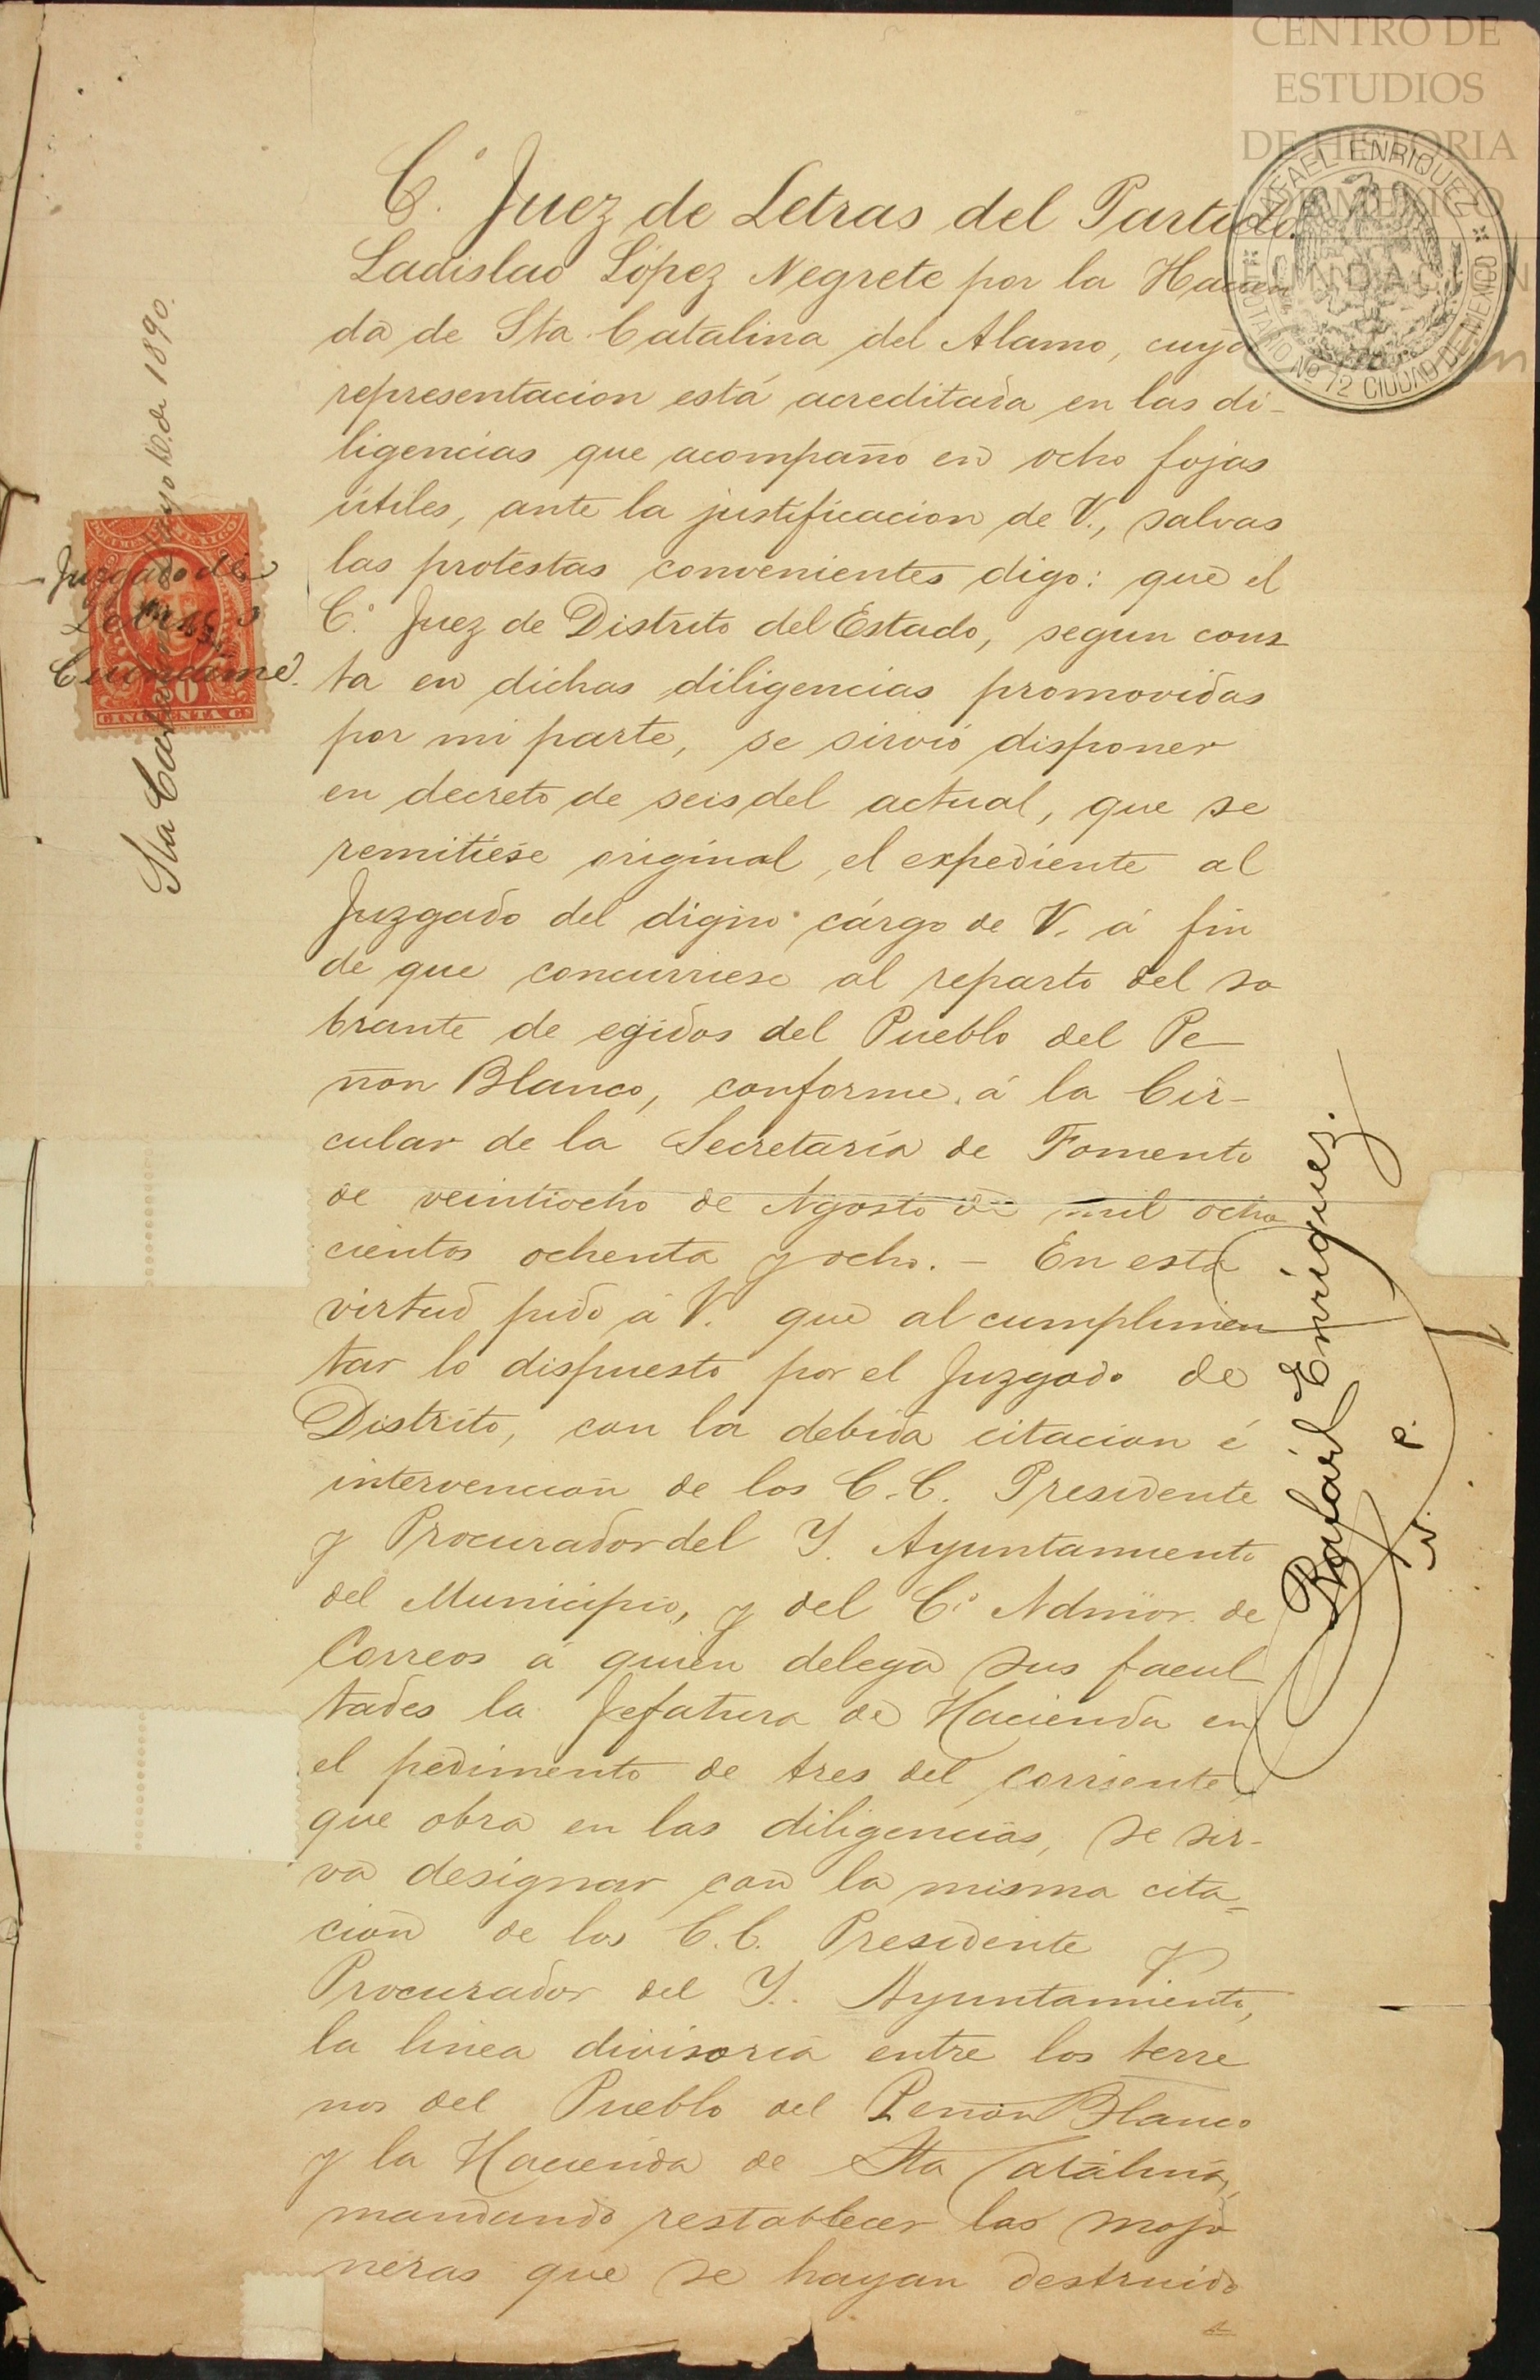 CENTRO DE
ESTUDIOS
DE HISTORIA
DE MEXICO
FUNDACION
RAFAEL ENRIQUEZ
NOTARIO No 12 CIUDAD DE MEXICO
C.º Juez de Letras del Partido.
Ladislao López Negrete por la Hacien
da de Sta Catalina del Alamo, cuya
representacion está acreditada en las di-
ligencias que acompaño en ocho fojas
útiles, ante la justificacion de V., salvas
las protestas convenientes digo: que el
C.º Juez de Distrito del Estado, segun cons
ta en dichas diligencias promovidas
por mi parte, se sirvió disponer
en decreto de seis del actual, que se
remitiese original, el expediente al
Juzgado del digno cárgo de V. á fin
de que concurriese al reparto del so
brante de egidos del Pueblo del Pe-
ñon Blanco, conforme á la Cir-
cular de la Secretaría de Fomento
de veintiocho de Agosto de mil ocho
cientos ochenta y ocho. - En esta
virtud pido á V. que al cumplimen
tar lo dispuesto por el Juzgado de
Distrito, con la debida citacion é
intervencion de los C.C. Presidente
y Procurador del Y. Ayuntamiento
del Municipio, y del C.º Admor. de
Correos á quien delega sus facul
tades la Jefatura de Hacienda en
el pedimento de tres del corriente,
que obra en las diligencias, se sir-
va designar con la misma cita-
cion de los C.C. Presidente y
Procurador del Y. Ayuntamiento,
la linea divisoria entre los terre
nos del Pueblo del Peñon Blanco
y la Hacienda de Sta Catalina,
mandando restablecer las mojo
neras que se hayan destruido
Juzgado de
Letras
Cuencamé.
CINCUENTA CS
Sta Catalina Mayo 10 de 1890.
Rafael Enriquez.
N. P.